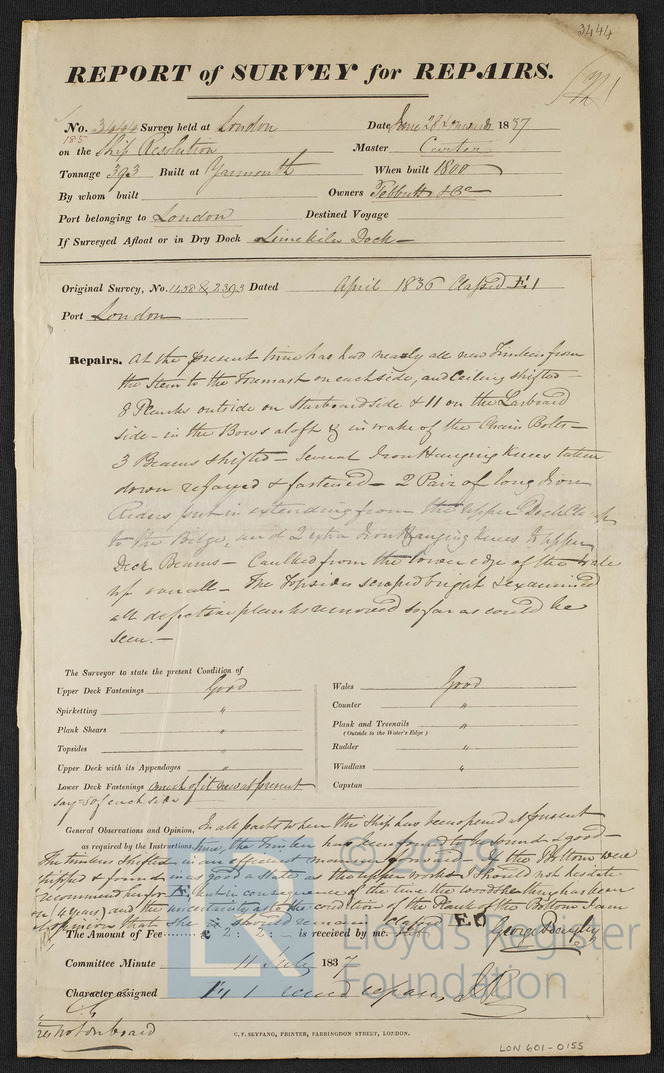 3444
REPORT of SURVEY for REPAIRS.
No. 3444 Survey held at London Date June 28 1837
on the Ship Resolution Master Carter
Tonnage 393 Built at Yarmouth When built 1800
By whom built Owners Tebbutt & Co
Port belonging to London Destined Voyage
If Surveyed Afloat or in Dry Dock Limekiln Dock
Original Survey, No. 1458 & 2393 Dated April 1836 Classed Æ 1
Port London
Repairs. At the present time has had nearly all new Timbers from
the Stem to the Foremast on each side, and Ceiling shifted
8 Planks outside on Starboard side & 11 on the Larboard
side in the Bows aloft & in wake of the Chain Bolts
3 Beams shifted several Iron Hanging Knees taken
down refayed & fastened 2 Pair of long Iron
Riders put in extending from the upper Deck
to the Bilge, and 2 extra Iron Hanging knees to upper
Deck Beams Caulked from the lower edge of the Wale
up overall The Topsides scraped bright & examined
all defective planks removed so far as could be
seen.
The Surveyor to state the present Condition of
Upper Deck Fastenings Good Wales Good
Spirketting " Counter "
Plank Shears " Plank and Treenails "
(Outside to the Water's Edge)
Topsides " Rudder "
Upper Deck with its Appendages " Windlass "
Lower Deck Fastenings much of it new at present Capstan
say 50 f each side
General Observations and Opinion, In all parts where this Ship has been opened at present
as required by the Instructions. time, the Timber has been found to be sound & good
The timbers shifted in an efficient manner If the Bottom were
stripped & found in as good a state as the upper works I should not hesitate
recommend her for Æ, but in consequence of the time the Wood sheathing has been
on (4 years) and the uncertainty as to the condition of the Plank of the Bottom I am
of opinion that she should remain Classed ED
The Amount of Fee £ 2: 2: is received by me. George Bayley
Committee Minute 11 July 1837
Character assigned Æ 1 repairs
not on board
C. F. SEYFANG, PRINTER, FARRINGDON STREET, LONDON.
LON 601-0155
© 2019
Lloyd's Register
Foundation